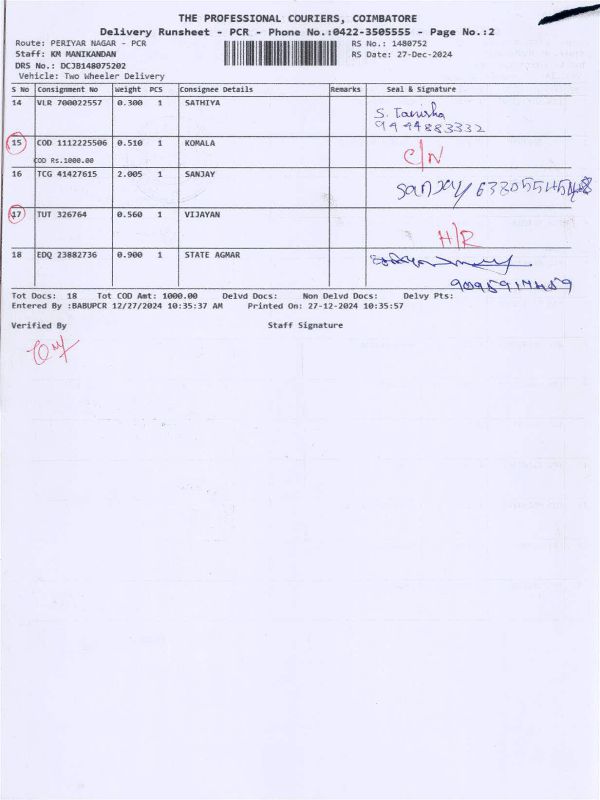 THE PROFESSIONAL COURIERS, COIMBATORE
Delivery Runsheet - PCR - Phone No.:0422-3505555 - Page No.:2
Route: PERIYAR NAGAR - PCR RS No.: 1480752
Staff: KM MANIKANDAN RS Date: 27-Dec-2024
DRS No.: DCJB148075202
Vehicle: Two Wheeler Delivery
S No Consignment No Weight PCS Consignee Details Remarks Seal & Signature
14 VLR 700022557 0.300 1 SATHIYA
S. Tanisha
9494883332
15 COD 1112225506 0.510 1 KOMALA C/N
COD Rs.1000.00
16 TCG 41427615 2.005 1 SANJAY
17 TUT 326764 0.560 1 VIJAYAN H/R
18 EDQ 23882736 0.900 1 STATE AGMAR
Tot Docs: 18 Tot COD Amt: 1000.00 Delvd Docs: Non Delvd Docs: Delvy Pts:
Entered By :BABUPCR 12/27/2024 10:35:37 AM Printed On: 27-12-2024 10:35:57
Verified By Staff Signature